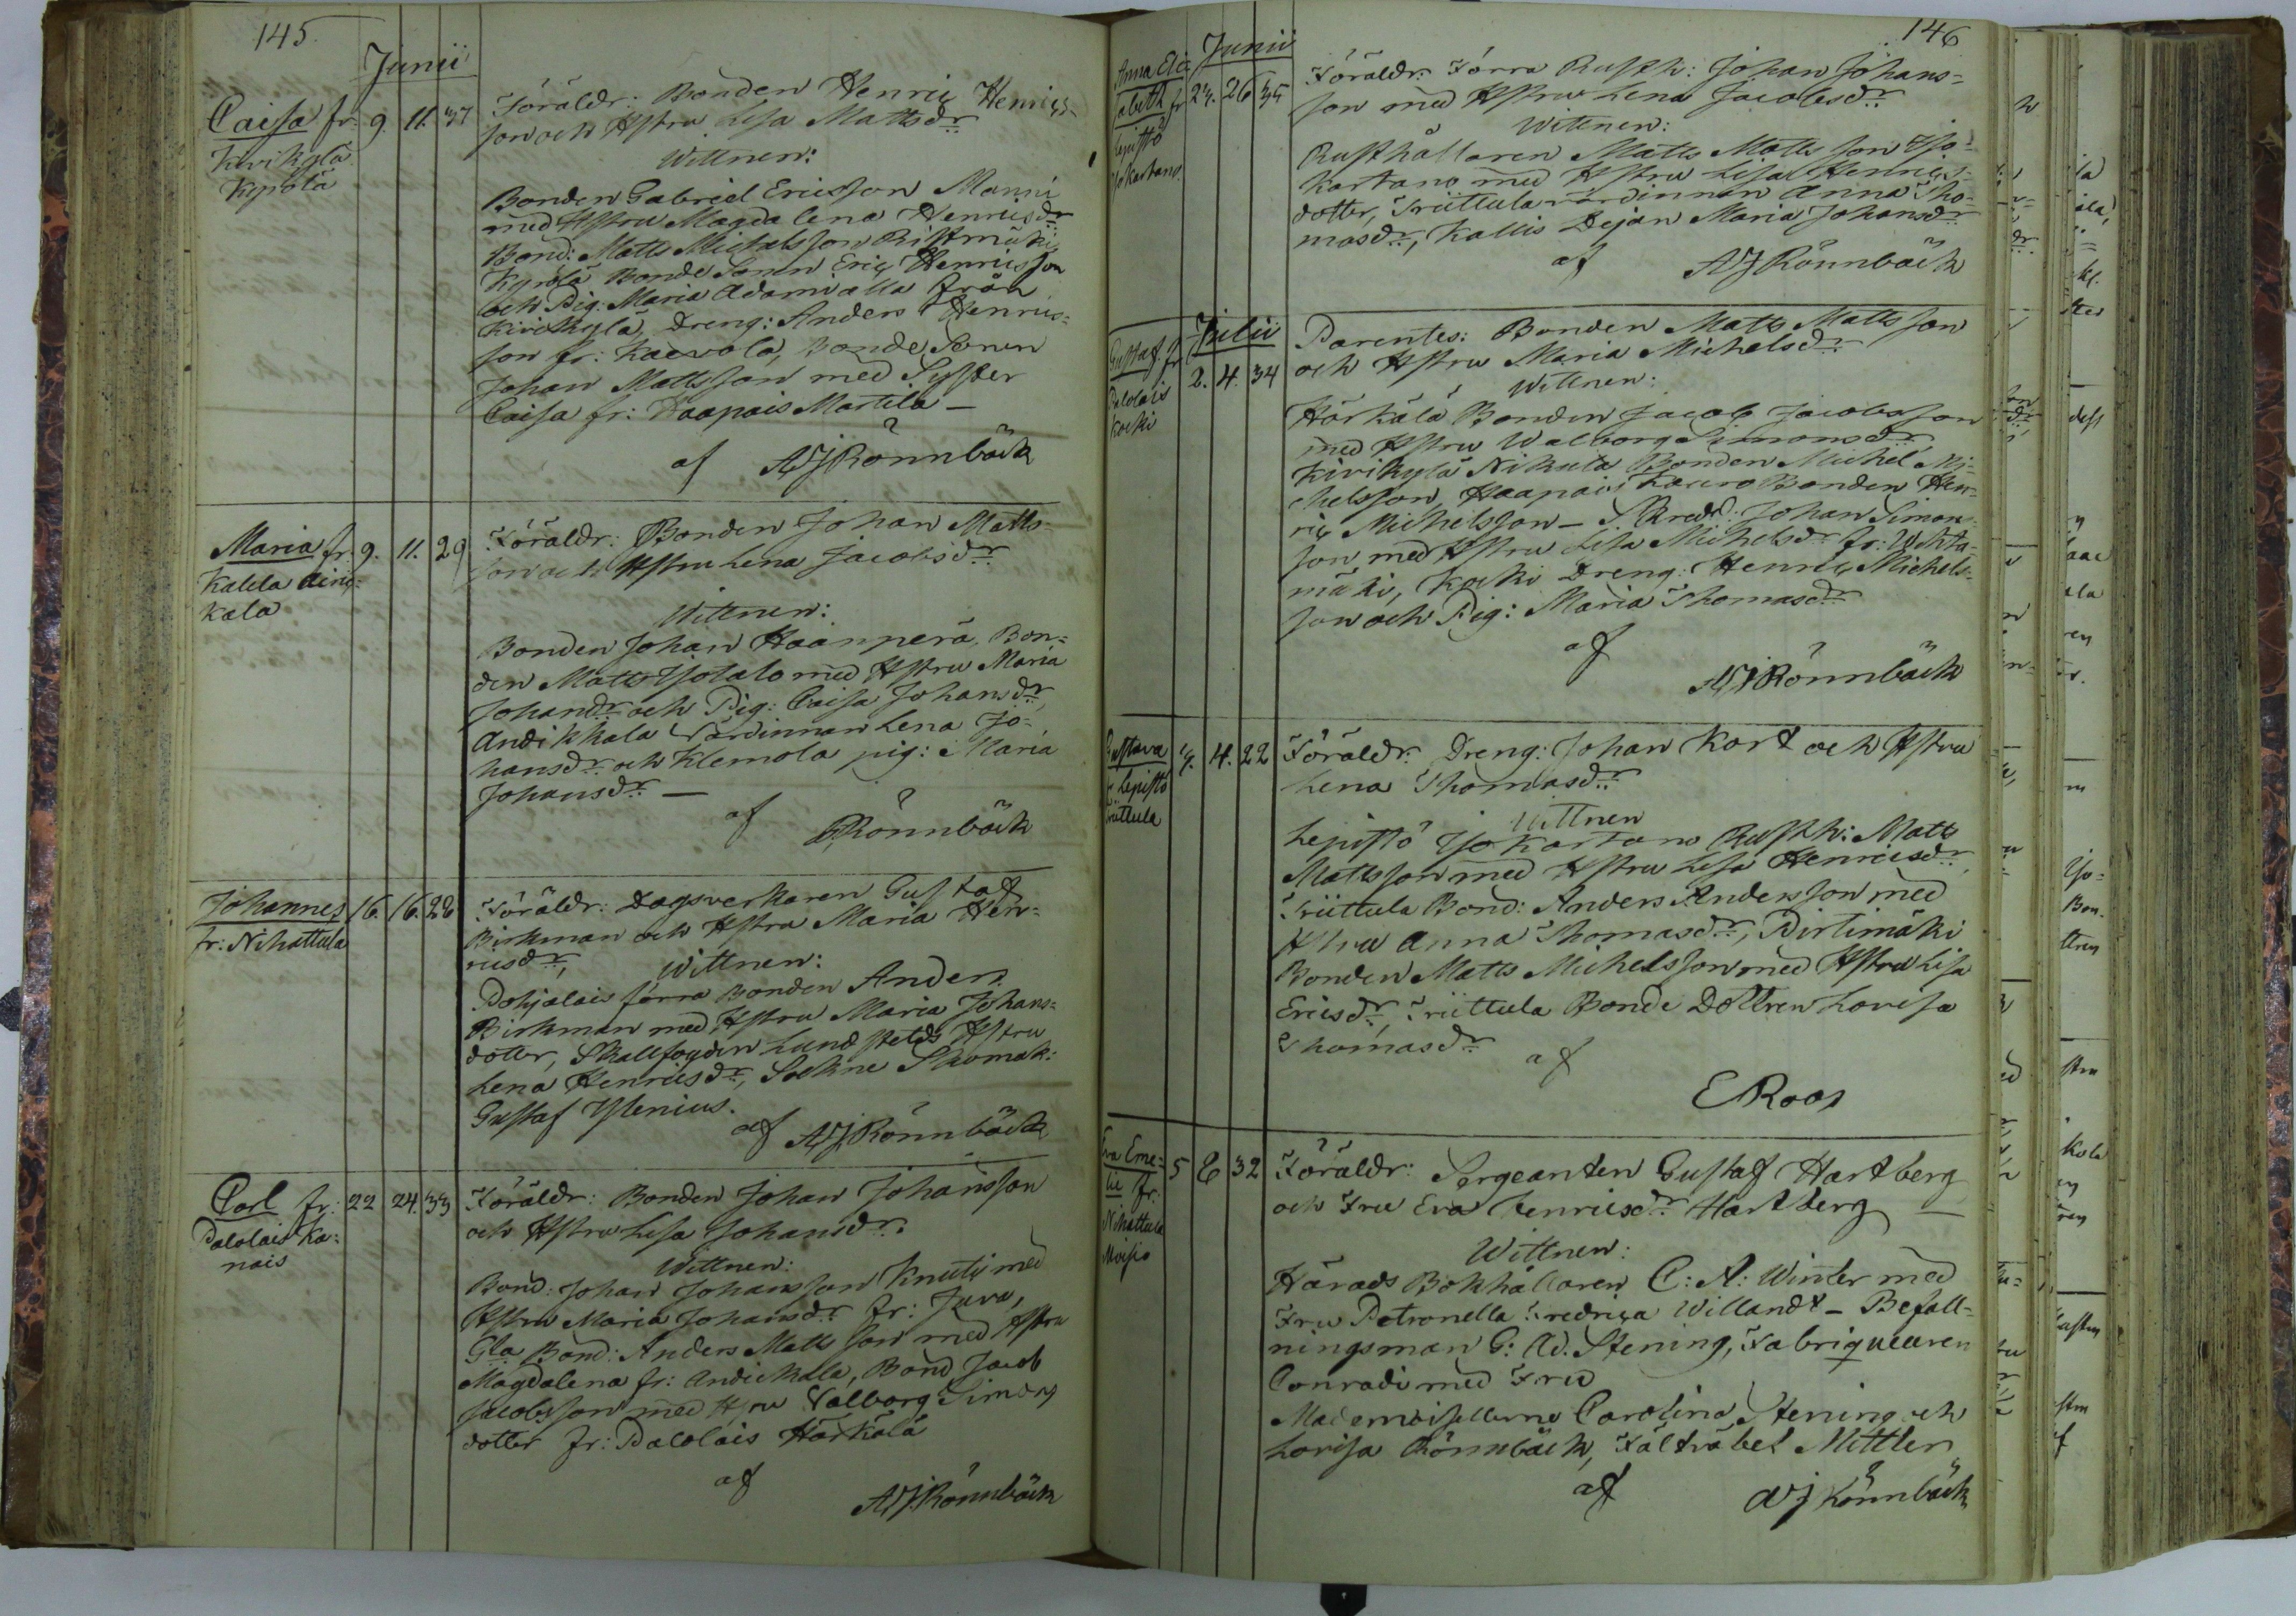 145.
Junii
Caisa fr: 9. 11. 37
Kivikylä
Kyrölä
Föräldr: Bonden Henric Henrics-
son och Hstru Lisa Mattsdr
Wittnen:
Bonden Gabriel Ericsson Manni
med Hstru Magdalena Henricsdr
Bond: Matts Michelsson Ristimäki,
Kyrölä Bonde Sonen Eric Henricsson
och Pig: Maria Adami alla från
Kivikylä, Dreng: Anders Henrics=
son fr: Kaurola, Bonde Sonen
Johan Mattsson med Syster
Caisa fr: Haapais Martila —
af AJRönnbäck
Maria fr: 9. 11. 29
Kalela
kala
Föräldr: Bonden Johan Matts-
son och Hstru Lena Jacobsdr
Wittnen:
Bonden Johan Haanperä, Bon=
den Matts Isotalo med Hstru Maria
Johansdr och Pig: Caisa Johansdr,
Andikkala Värdinnan Lena Jo-
hansdr och Klemola pig: Maria
Johansdr —
af Rönnbäck
Johannes 16. 16. 28
fr: Nihattula
Föräldr: Dagsverkaren Gustaf
Birkman och Hstru Maria Hen=
ricsdr,
Wittnen:
Pohjalais förra Bonden Anders
Birkman med Hstru Maria Johans=
dotter, Skallfogden Lundstedts Hstru
Lena Henricsdr, Sockne Skomak:
Gustaf Ylenius.
af AJRönnbäck
Carl fr: 22 24. 33
Palolais Ka=
nais
Föräldr: Bonden Johan Johansson
och Hstru Lisa Johansdr:
Wittnen:
Bond: Johan Johansson Knuti med
Hstru Maria Johansdr fr: Juva,
Gla Bond: Anders Mattsson med Hstru
Magdalena fr: Andickala, Bond Jacob
Jacobsson med Hstru Valborg Simons
dotter fr: Palolais Härkälä
af AJRönnbäck
146
Junii
Anna Eli=
sabeth fr 23. 26 35
Lepistö
Isokartano
Föräldr: Förra Rusth: Johan Johans=
son med Hstru Lena Jacobsdr
Wittnen:
Rusthållaren Matts Mattsson Iso=
kartano med Hstru Lisa Henrics=
dotter, Friittula värdinnan Anna Tho=
masdr, Kallis Pejan Maria Johansdr
af AJRönnbäck
Julii
Gustaf fr 2. 4. 34
Palolais
Kocki
Parentes: Bonden Matts Mattsson
och Hstru Maria Michelsdr
Wittnen:
Härkälä Bonden Jacob Jacobsson
med Hstru Walborg Simonsdr
Kivikylä Nikula Bonden Michel Mi=
chelsson, Haapais Lauro Bonden Hen=
ric Michelsson — Skredd: Johan Simons
son, med Hstru Lisa Michelsdr fr: Wehka=
mäki, Kocki Dreng: Henric Michels=
son och Pig: Maria Thomasdr
af
AJRönnbäck
Gustava 4. 4. 22
fr Lepistö
Friittula
Föräldr: Dreng: Johan Kort och Hstru
Lena Thomasdr
Wittnen
Lepistö Isokartano Rusth: Matts
Mattsson med Hstru Lisa Henricsdr,
Friittula Bond: Anders Andersson med
Hstru Anna Thomasdr, Pirtimäki
Bonden Matts Michelsson med Hstru Lisa
Ericsdr, Friittula Bonde Dottren Lovisa
Thomasdr
af
ERoos
Eva Eme=
lie fr: 5 8 32
Nihattula
Moisio
Föräldr: Sergeanten Gustaf Hartberg
och Fru Eva Henricsdr Hartberg —
Wittnen:
Härads Bokhållaren C: A: Winter med
Fru Petronella Fredrica Willandt — Befall=
ningsman G: Ad. Stening, Fabriqueuren
Conradi med Fru
Mademoisellerne Carolina Stening och
Lovisa Rönnbäck, Fältväbel Mittler
af AJRönnbäck